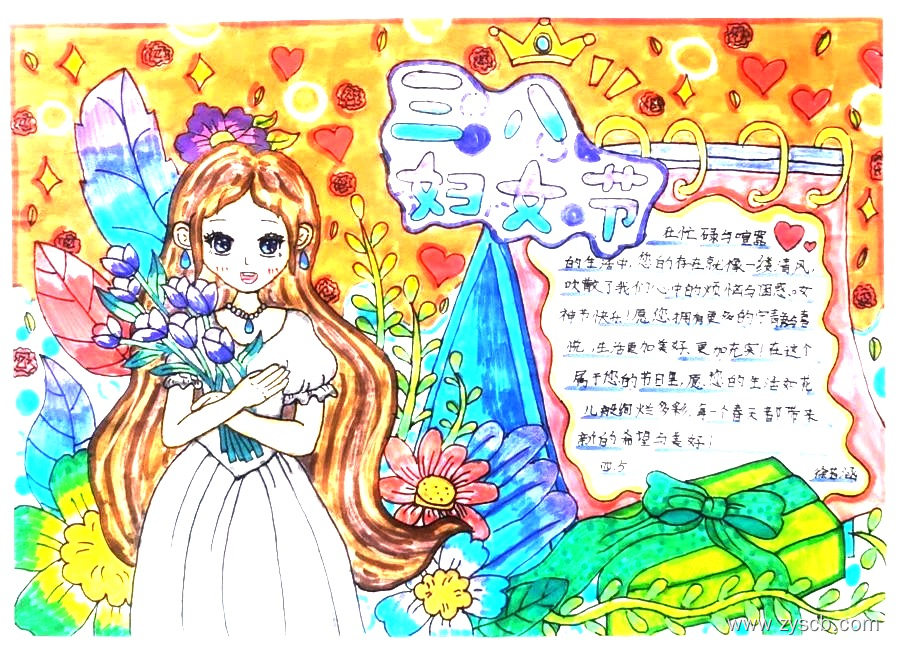 三八
妇女节
在忙碌与喧嚣
的生活中,您的存在就像一缕清风,
吹散了我们心中的烦恼与困惑。女
神节快乐!愿您拥有更多的
悦,生活更加美好,更加充实!在这个
属于您的节日里,愿您的生活如花
儿般绚烂多彩,每一个春天都带来
新的希望与美好!
四.5
www.zyscb.com